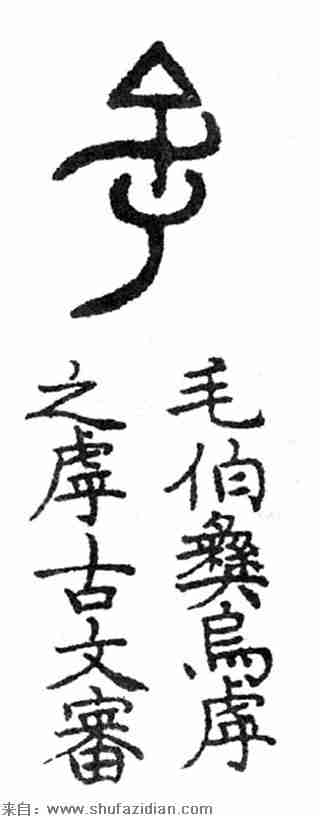 毛伯彝烏虖
之虖古文審
来自：www.shufazidian.com